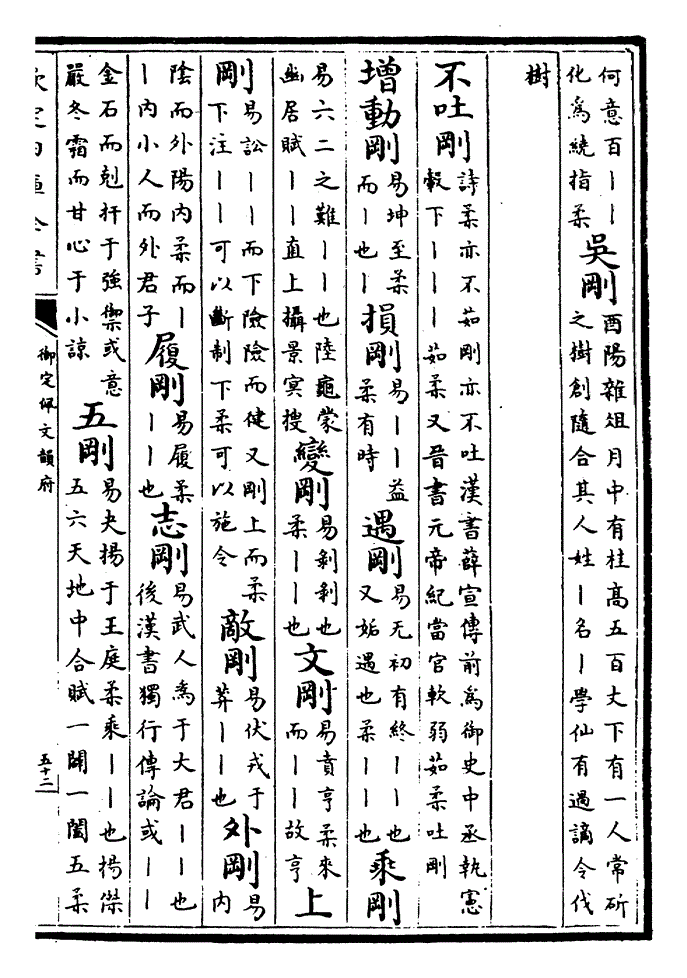 何意百||化為繞指柔 吳剛 酉陽雜俎月中有桂高五百丈下有一人常斫之樹創隨合其人姓|名|學仙有過謫令伐
樹
不吐剛 詩柔亦不茹剛亦不吐漢書薛宣傳前為御史中丞執憲轂下|||茹柔又晉書元帝紀當官軟弱茹柔吐剛
增動剛 易坤至柔而|也| 損剛 易||益柔有時 遇剛 易无初有終||也又姤遇也柔||也 乘剛
易六二之難||也陸龜蒙幽居賦||直上攝景冥搜 變剛 易剝剝也柔||也 文剛 易賁亨柔來而||故亨 上
剛 易訟||而下險險而健又剛上而柔下注||可以斷制下柔可以施令 敵剛 易伏戎于莽||也 外剛 易內
陰而外陽內柔而||內小人而外君子 履剛 易履柔||也 志剛 易武人為于大君||也後漢書獨行傳論或||
金石而剋扞于強禦或意嚴冬霜而甘心于小諒 五剛 易夬揚于王庭柔乘||也楊傑五六天地中合賦一闢一闔五柔
欽定四庫全書
御定佩文韻府
五十二